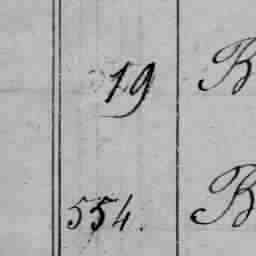 19 B
554. B